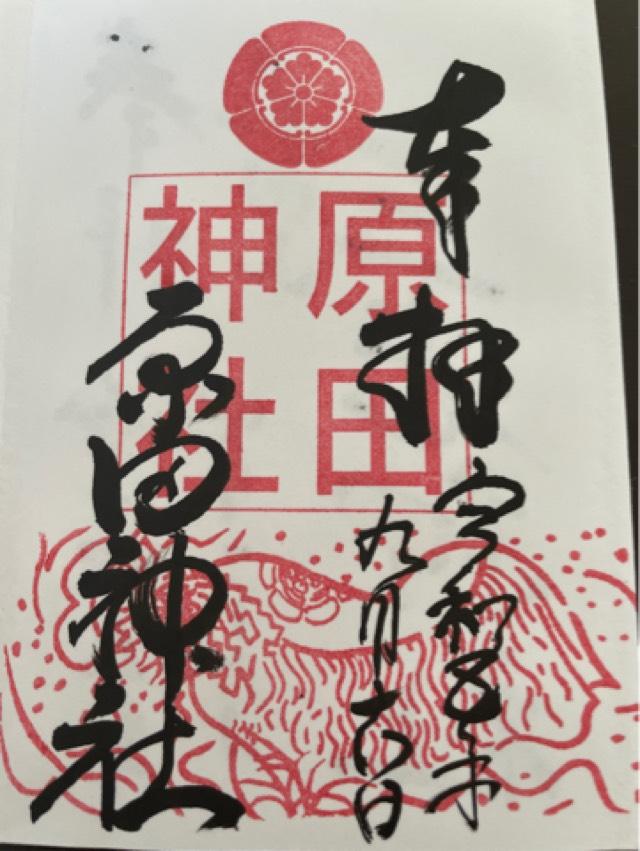 奉拝
令和五年
九月六日
原田
神社
原田神社